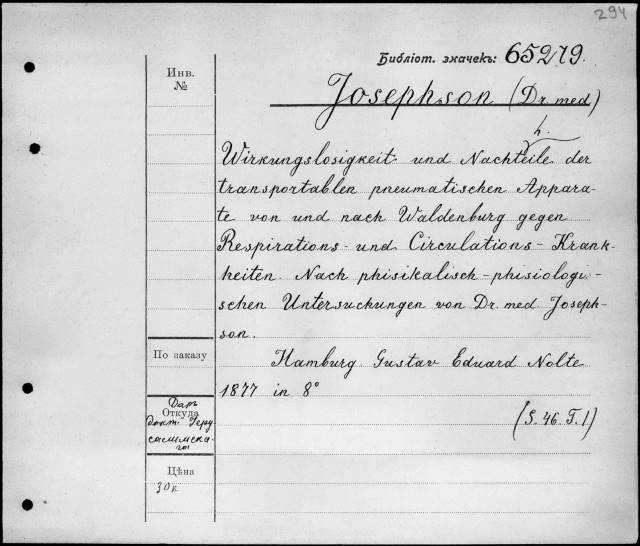 294
Библіот. значекъ: 65279.
Инв.
№
Josephson (Dr. med)
h.
Wirkungslosigkeit und Nachteile der
transportablen pneumatischen Appara-
te von und nach Waldenburg gegen
Respirations- und Circulations-Krank-
heiten. Nach phisikalisch-phisiologi-
schen Untersuchungen von Dr. med. Joseph-
son.
По заказу
Hamburg Gustav Eduard Nolte
1877 in 8°
Даръ
Откуда
докт. Іеру
салимска-
го
(S. 46. T. 1)
Цѣна
30 к